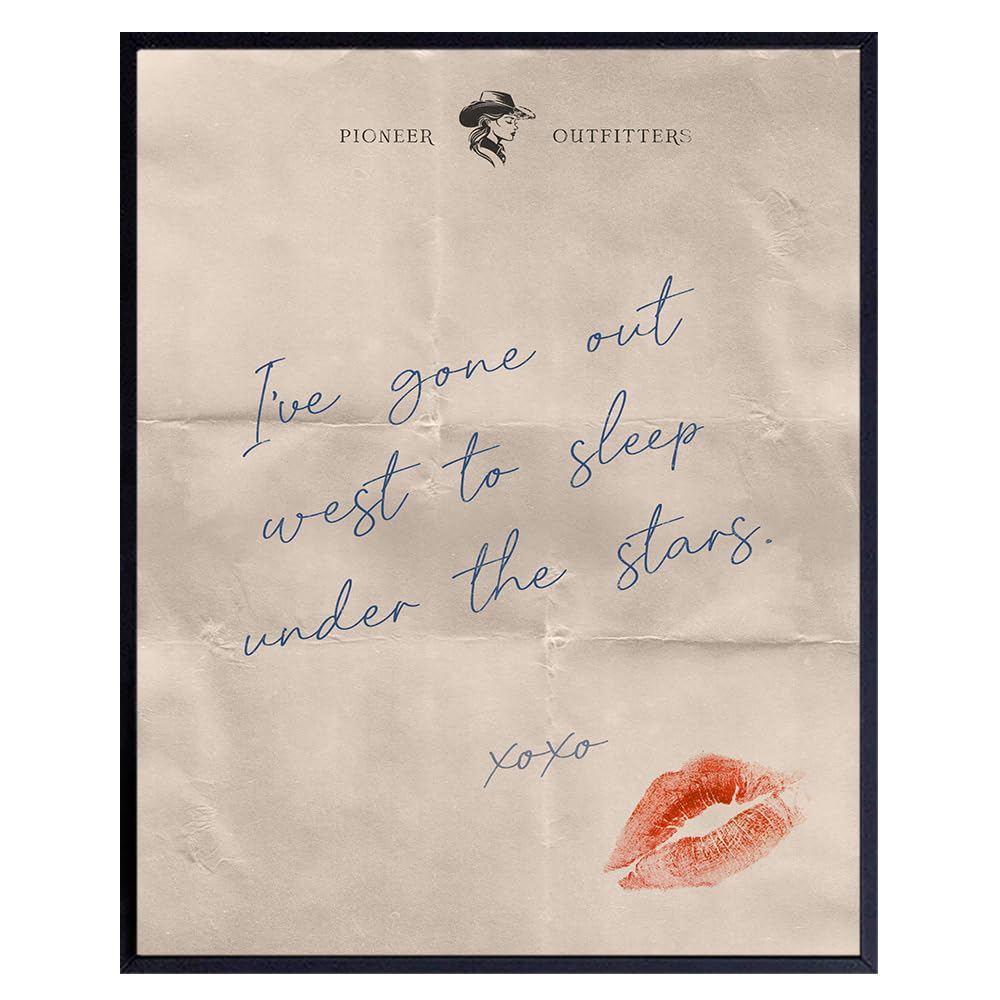 PIONEER OUTFITTERS
I've gone out
west to sleep
under the stars.
xoxo